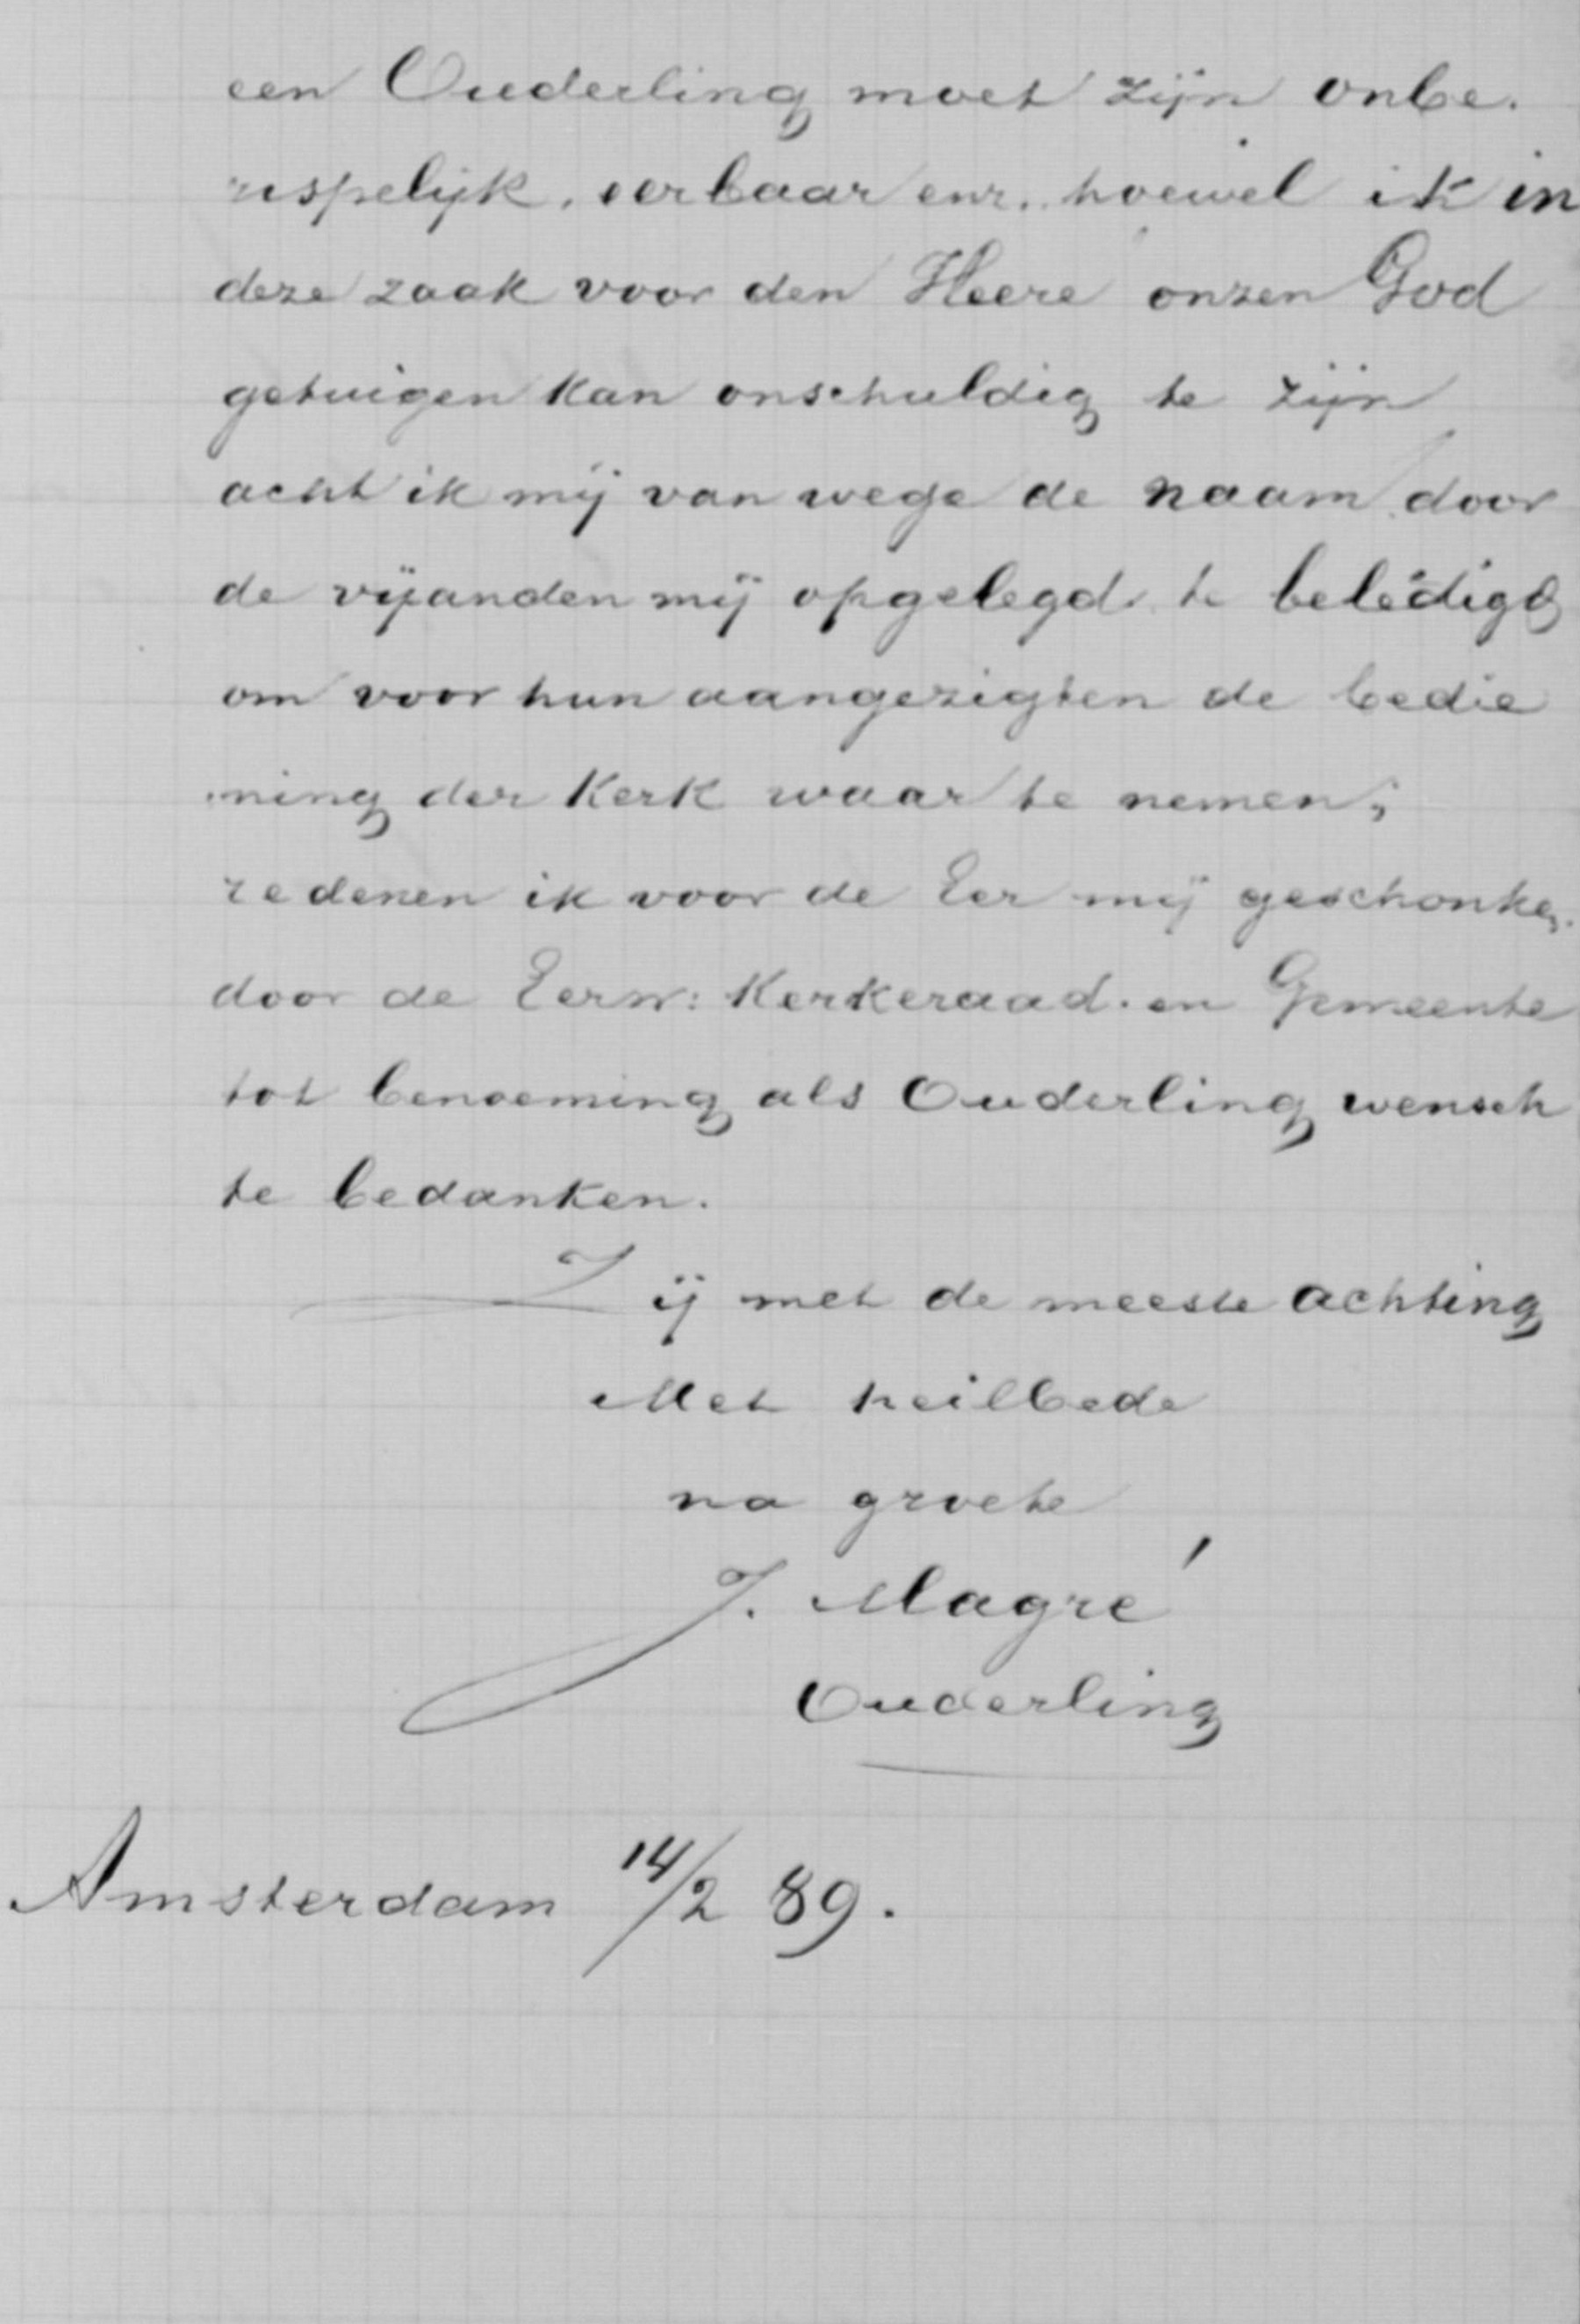 een Ouderling moet zijn onbe.
rispelijk, eerbaar enz. hoewel ik in
deze zaak voor den Heere onzen God
getuigen kan onschuldig te zijn
acht ik mij van wege de naam door
de vijanden mij opgelegd te beledigd
om voor hun aangezigten de bedie
ning der Kerk waar te nemen;
redenen ik voor de Eer mij geschonken
door de Eerw: Kerkeraad. en Gemeente
tot benoeming als Ouderling wensch
te bedanken.
Zij met de meeste achting
Met heilbede
na groete
J. Magré
Ouderling
Amsterdam 14/2 89.